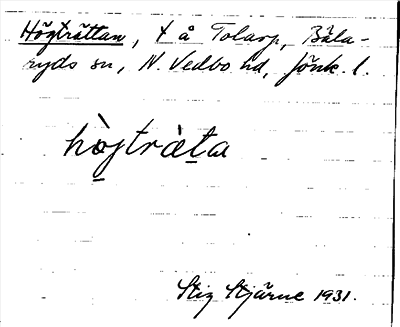 Högträttan, t å Tolarp, Bäla-
ryds sn, N. Vedbo hd, Jönk. l.
hò̱jtràta
Stig Stjärne 1931.